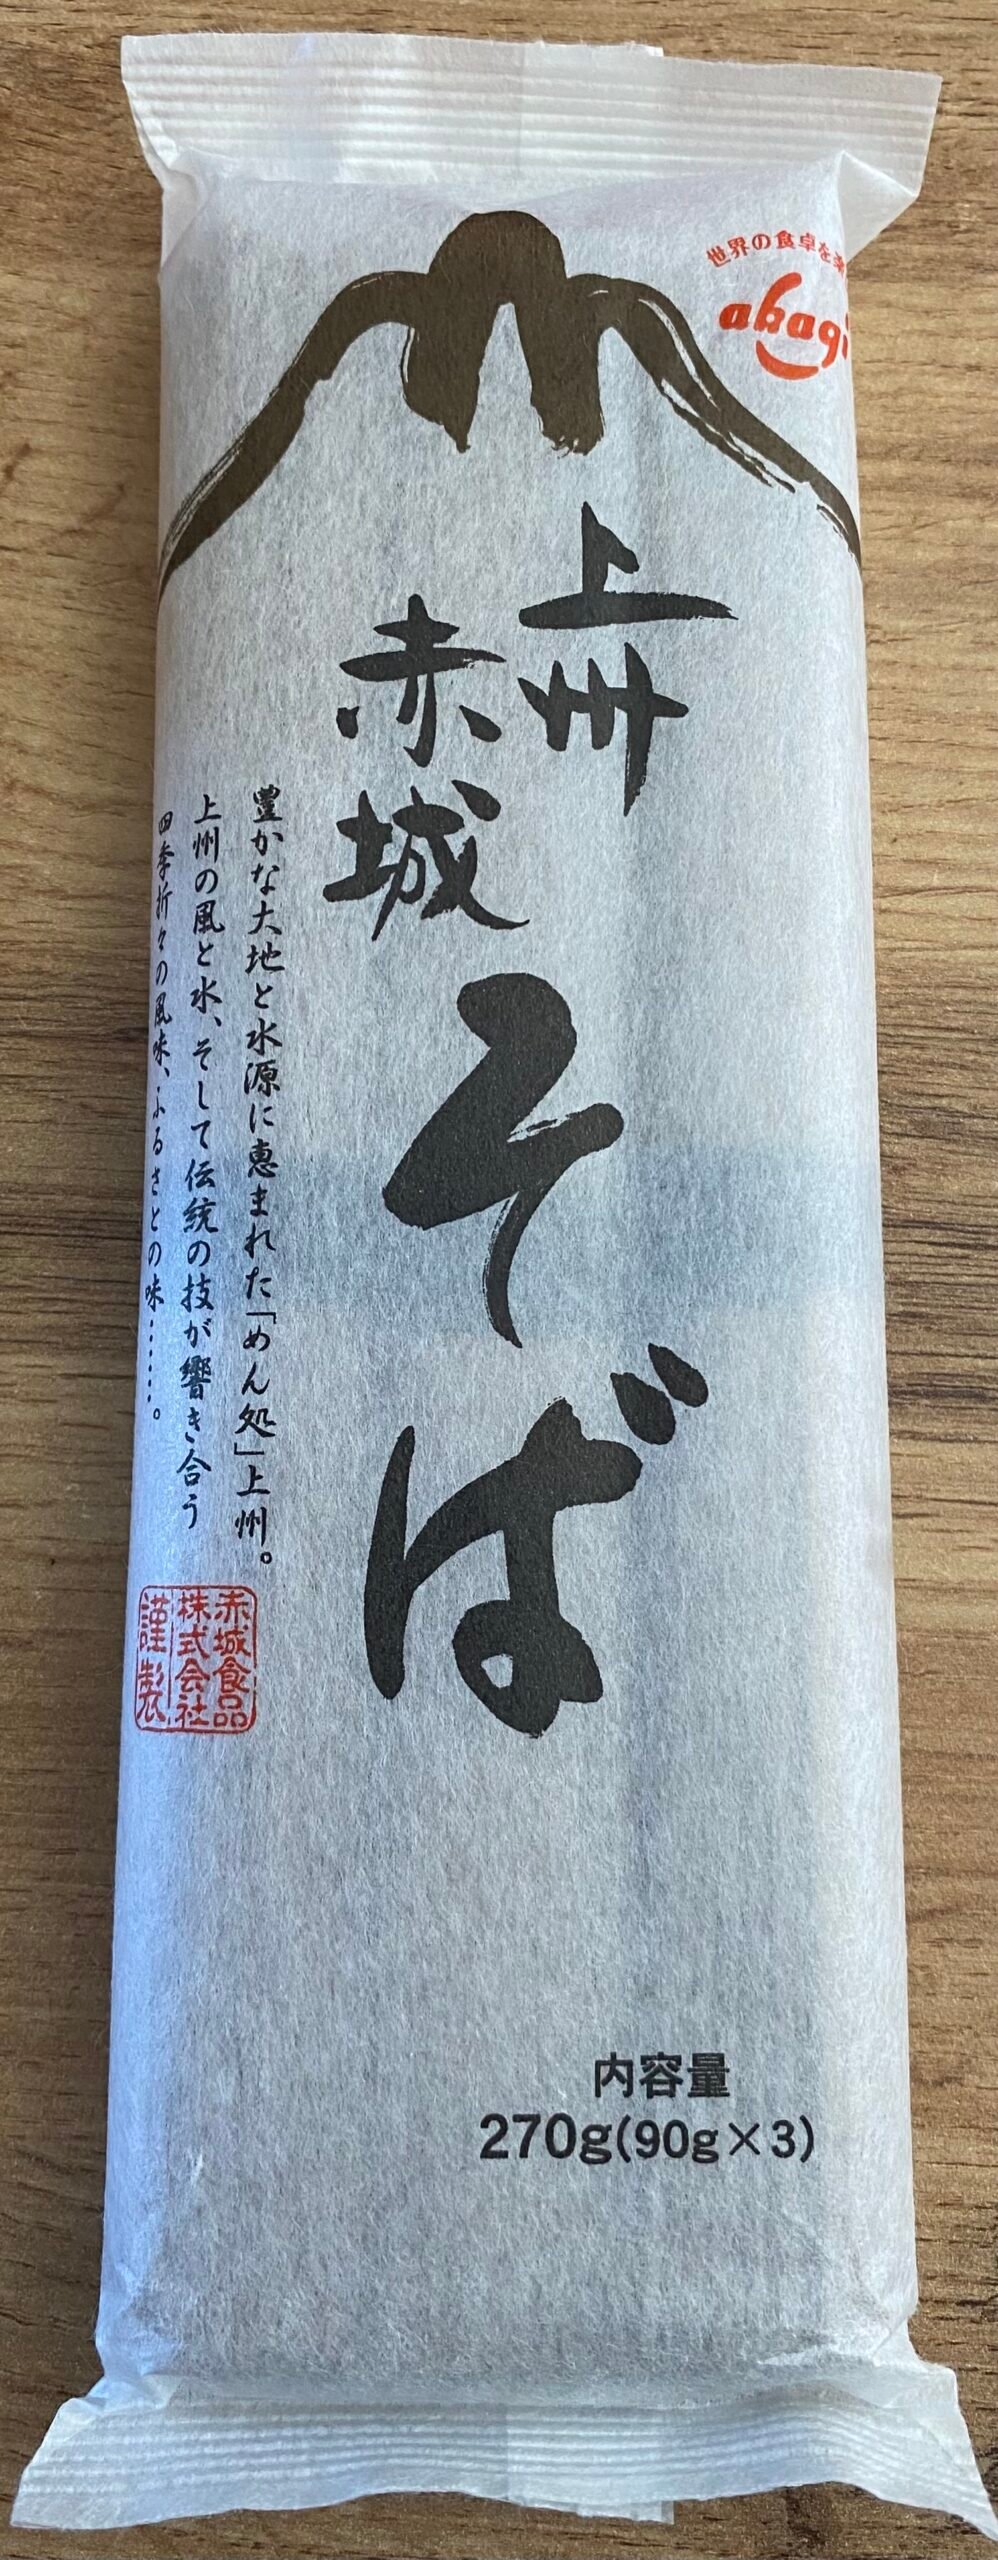 世界の食卓を
abagi
上州
赤城
そば
豊かな大地と水源に恵まれた「めん処」上州。
上州の風と水、そして伝統の技が響き合う
四季折々の風味、ふるさとの味……。
赤城食品
株式会社
謹製
内容量
270g(90g×3)